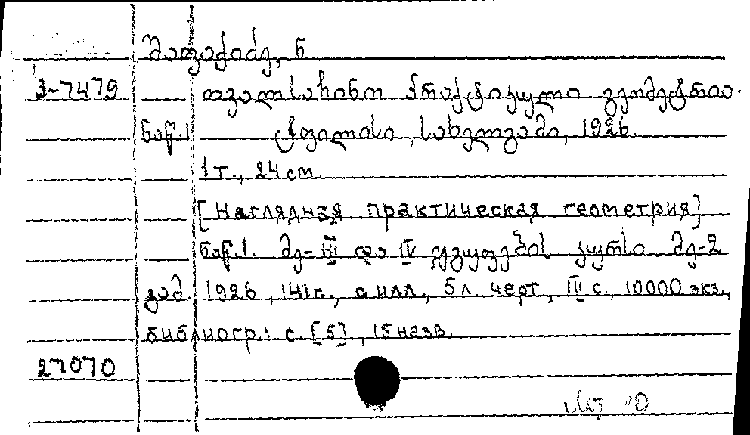 შაფაქიძე, ნ
3-7479 თვალსაჩინო პრაქტიკული გეომეტრია.
ნაწ.1 ტფილისი, სახელგამი, 1926.
1 т., 24 см
[Наглядная практическая геометрия]
ნაწ.1. მე-III და IV ჯგუფების კურსი. მე-2
გამ. 1926, 141 г., с илл., 5 л. черт, IV с., 10000 экз.,
библиогр.: с. [5], 15 назв.
27070